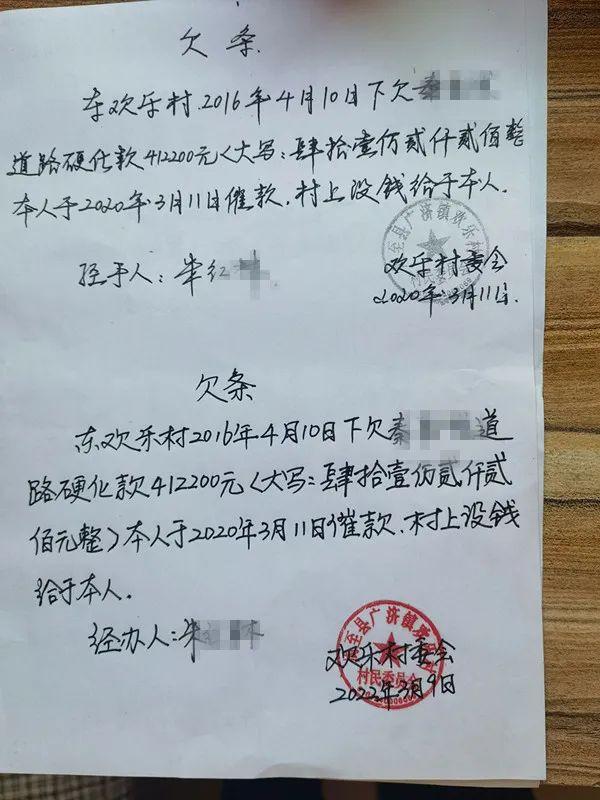 欠条
东欢乐村.2016年4月10日下欠秦
道路硬化款412200元<大写:肆拾壹仿贰仟贰佰整
本人于2020年3月11日催款.村上没钱给于本人.
至县广济镇欢乐村
村民委员会
经手人:牟红
欢乐村委会
2020年3月11日.
欠条
东.欢乐村2016年4月10日下欠秦道
路硬化款412200元<大写:肆拾壹仿贰仟贰
佰元整>本人于2020年3月11日催款.村上没钱
给于本人.
至县广济镇
村民委员会
经办人:
欢乐村委会
2022年3月9日